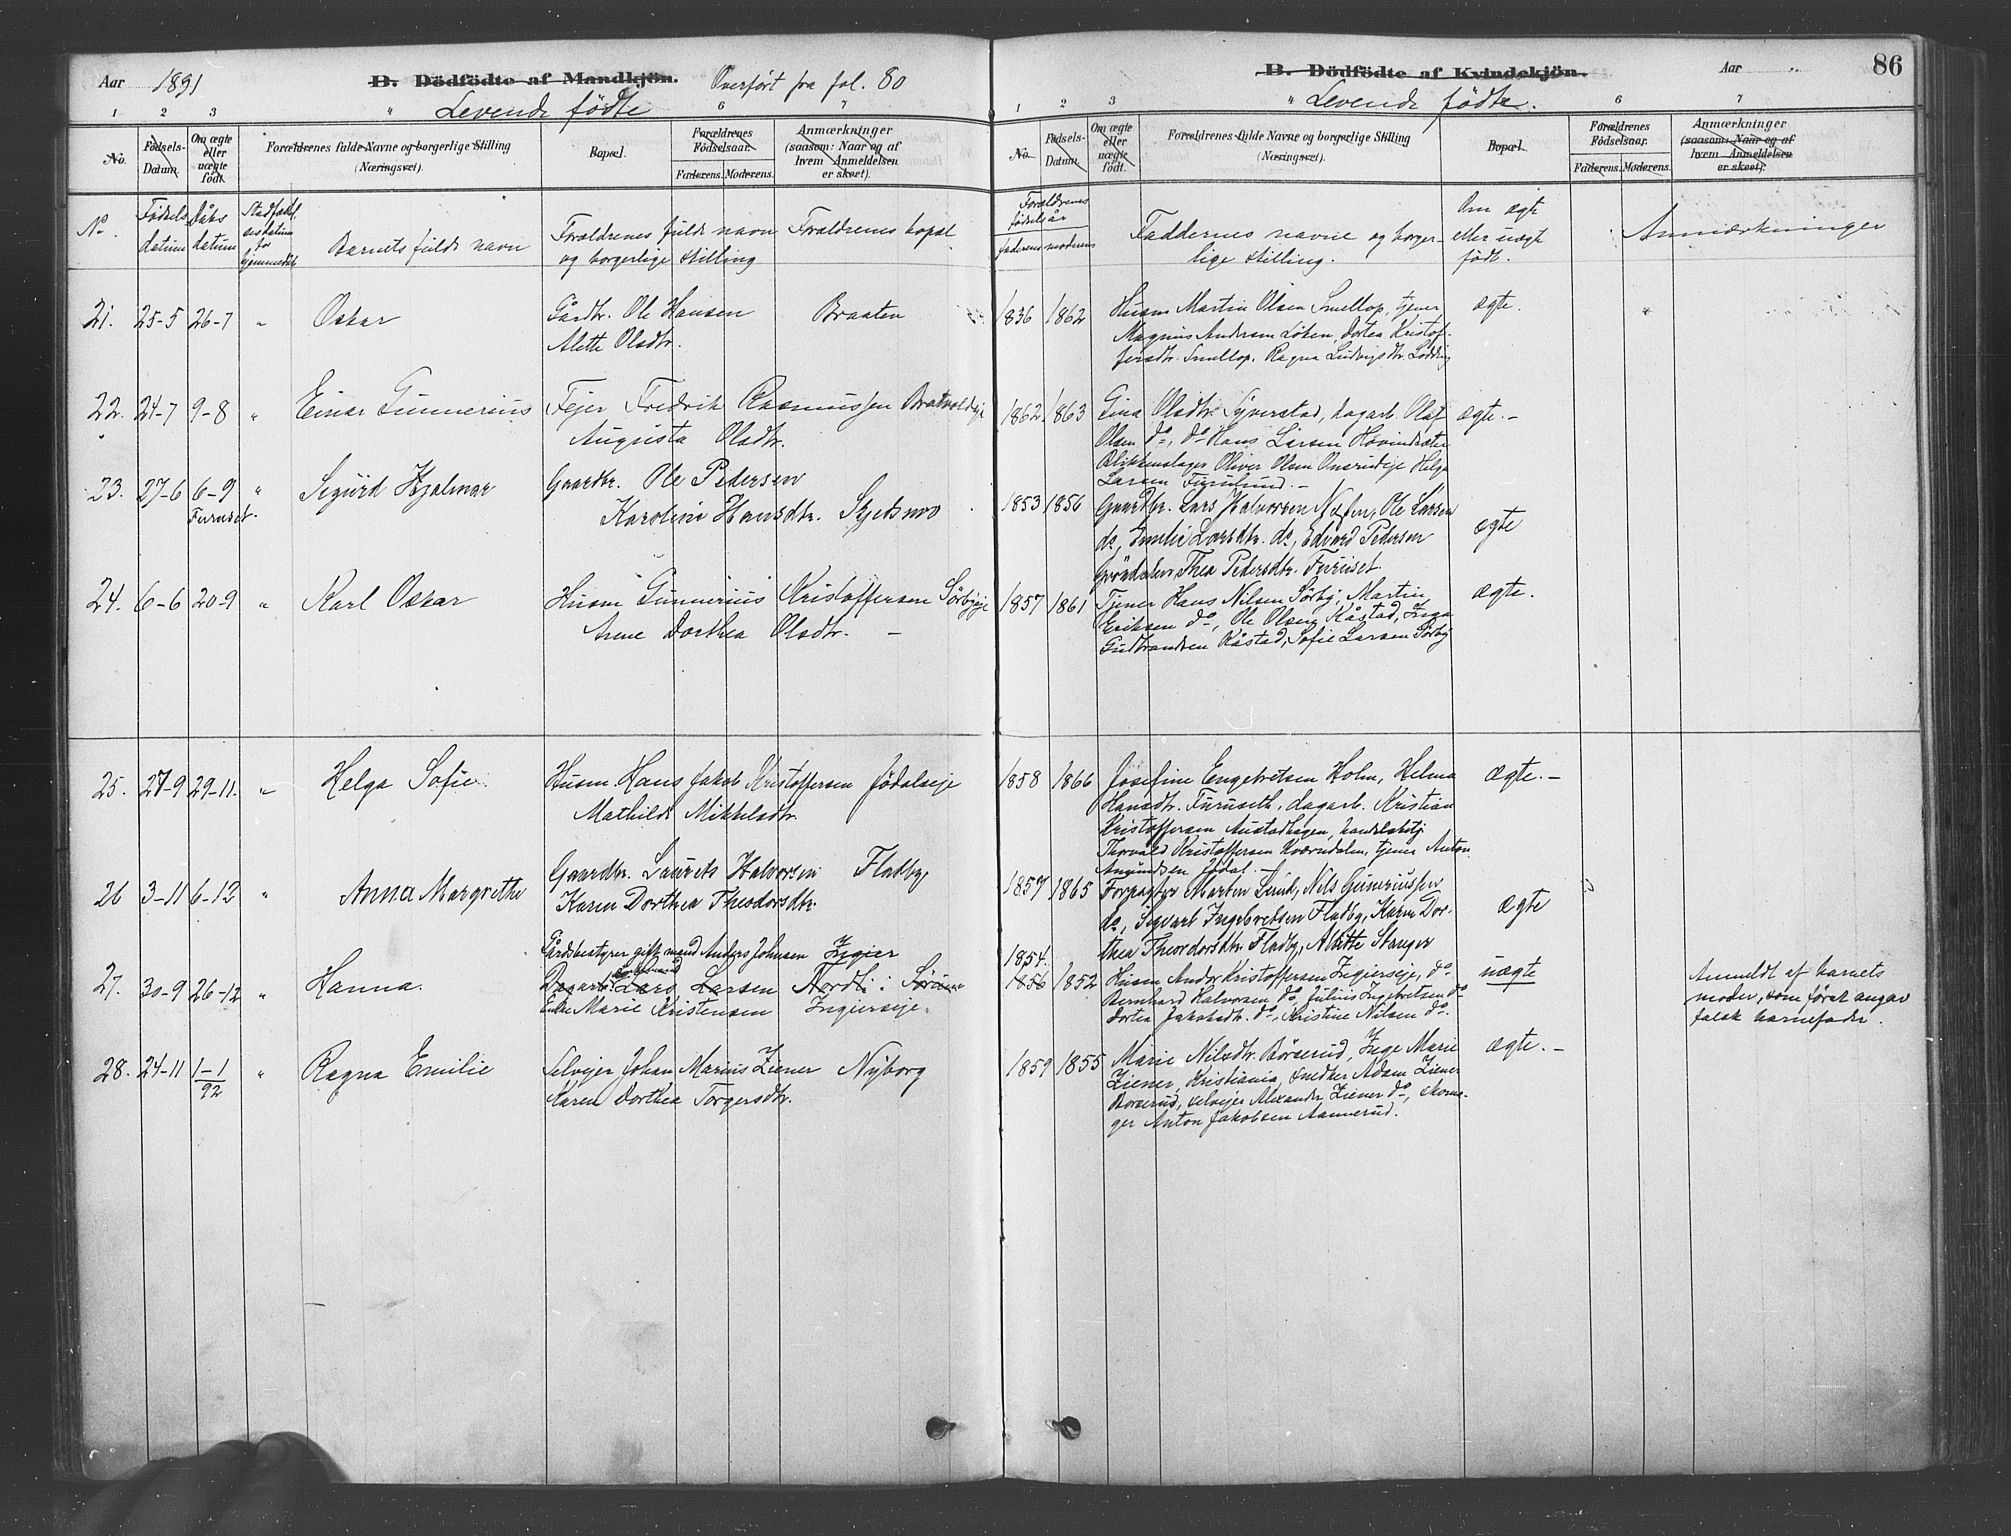 Aar 1891 B. Dödfödte af Mandkjön. Overført fra fol. 80
1 2 3 " Levende fødte 6 7
No. Fødsels-Datum. Om ægte eller uægte født. Forældrenes fulde Navne og borgerlige Stilling (Næringsvei). Bopæl. Forældrenes Fødselsaar. Faderens. Moderens. Anmærkninger (saasom: Naar og af hvem Anmeldelsen er skeet).
No. Fødsels datum Dåbs datum Stadfæstelsesdatum for hjemmedåb Barnets fulde navn Forældrenes fulde navn og borgerlige stilling Forældrenes bopæl
21. 25-5 26-7 " Oskar Gårdbr. Ole Hansen Braaten
Alette Olsdtr.
22. 24-7 9-8 " Einar Gunnerius Fejer Fredrik Rasmussen Bratvoldeje
Augusta Olsdtr.
23. 27-6 6-9 " Sigurd Hjalmar Gaardbr. Ole Pedersen
Furuset. Karoline Hansdtr. Skjetsmo
24. 6-6 20-9 " Karl Oskar Husm Gunnerius Kristoffersen Sörbyeje
Anne Dorthea Olsdtr. —
25. 27-9 29-11. " Helga Sofie Husm. Hans Jakob Kristoffersen Jödalseje
Mathilde Mikkelsdtr.
26 3-11 6-12 " Anna Margrethe Gaardbr. Laurets Halvorsen Fladby
Karen Dorthea Theodorsdtr.
Gårdsbestyrer gift mand Anders Johnsen Ingier
27. 30-9 26-12 " Hanna. Dagarb. Lars Larsen Nordli i Sörum
Enke Marie Kristensen Ingierseje.
28. 24-11 1-1/92 " Ragna Emilie Selvejer Johan Marius Ziener Nyborg
Karen Dorthea Torgersdtr.
B. Dödfödte af Kvindekjön. Aar " 86
1 2 3 " Levende fødte. 6 7
No. Fødsels-Datum. Om ægte eller uægte født. Forældrenes fulde Navne og borgerlige Stilling (Næringsvei). Bopæl. Forældrenes Fødselsaar. Faderens. Moderens. Anmærkninger (saasom: Naar og af hvem Anmeldelsen er skeet).
Forældrenes fødselsår faderens moderens Faddernes navne og borgerlige stilling. Om ægte eller uægte født. Anmærkninger
1836 1862 Husm Martin Olsen Smellop, tjener ægte. "
Magnus Andersen Löken, Dortea Kristof-
fersdtr. Smellop, Ragna Ludvigsdtr. Lödding
1862 1863 Gina Olsdtr. Syverstad, dagarb. Olaf ægte.-
Olsen do, do Hans Larsen Hovindsæter
Blikkenslager Oliver Olsen Onsrudeje Helga
Larsen Furulund. —
1853 1856 Gaardbr. Lars Halvorsen Næfen, Ole Larsen
do, Emilie Larsdtr. do, Edvard Pedersen ægte
Gröndalen, Thea Pedersdtr. Furuset.
1857 1861 Tjener Hans Nilsen Sörby, Martin ægte.
Eriksen do, Ole Olsen Råstad, Inga
Gudbrandsen Råstad, Sofie Larsen Sörby
1858 1866 Josefine Engebretsen Holm, Helma ægte.-
Hansdtr. Furuseth, dagarb. Kristian
Kristoffersen Austadhagen, handelsbetj.
Thorvald Kristoffersen Kværndalen, tjener Anton
Amundsen Jödal. —
1857 1865 Forpagter Marten Lund, Nils Gunerussen
do, Sigvart Ingebretsen Fladby, Karen Dor- ægte
thea Theodorsdtr. Fladby, Alette Stanger
1854.
1856 1852 Husm Andr. Kristoffersen Ingierseje, do uægte Anmeldt af barnets
Bernhard Halvorsen do, Julius Ingebretsen do moder, som først angav
Dortea Jakobsdtr. do, Kristine Nilsen do. falsk barnefader.
1859 1855 Marie Nilsdtr. Börserud, Inge Marie ægte.-
Ziener, Kristiania, snedker Adam Ziener
Börserud, selvejer Alexander Ziener do, skoma-
ger Anton Jakobsen Aamerud.